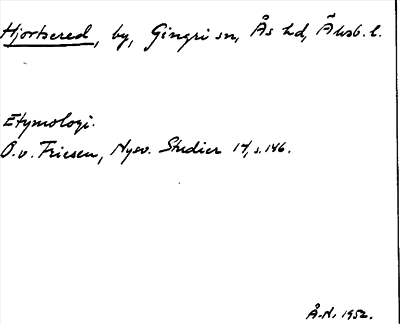 Hjortsered, by, Gingri sn, Ås hd, Älvsb. l.
Etymologi.
O. v. Friesen, Nysv. Studier 14, s. 146.
Å.H. 1952.